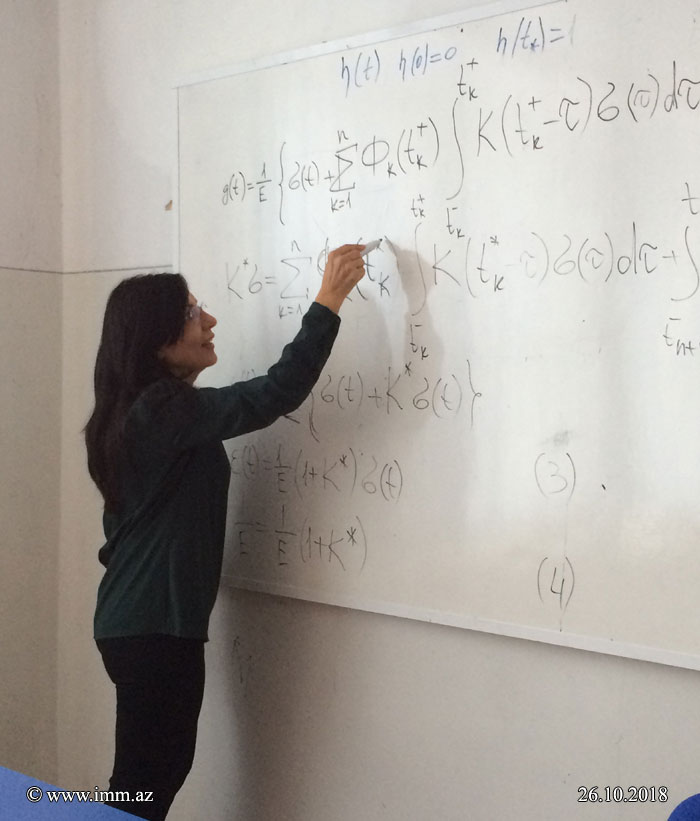 η(t) η(0)=0 η(t_k)=1
g(t)=1/E { σ(t)+ Σ_{k=1}^{n} Φ_k(t_k^+) ∫_{t_k^-}^{t_k^+} K(t_k^+-τ)σ(τ)dτ
K*σ= Σ_{k=1}^{n} ∫_{t_k^-}^{t_k^+} K(t_k^*-τ)σ(τ)dτ+ ∫
{σ(t)+K*σ(t)}
ε(t)=1/E (1+K*)σ(t) (3)
1/E=1/E (1+K*)
(4)
© www.imm.az 26.10.2018